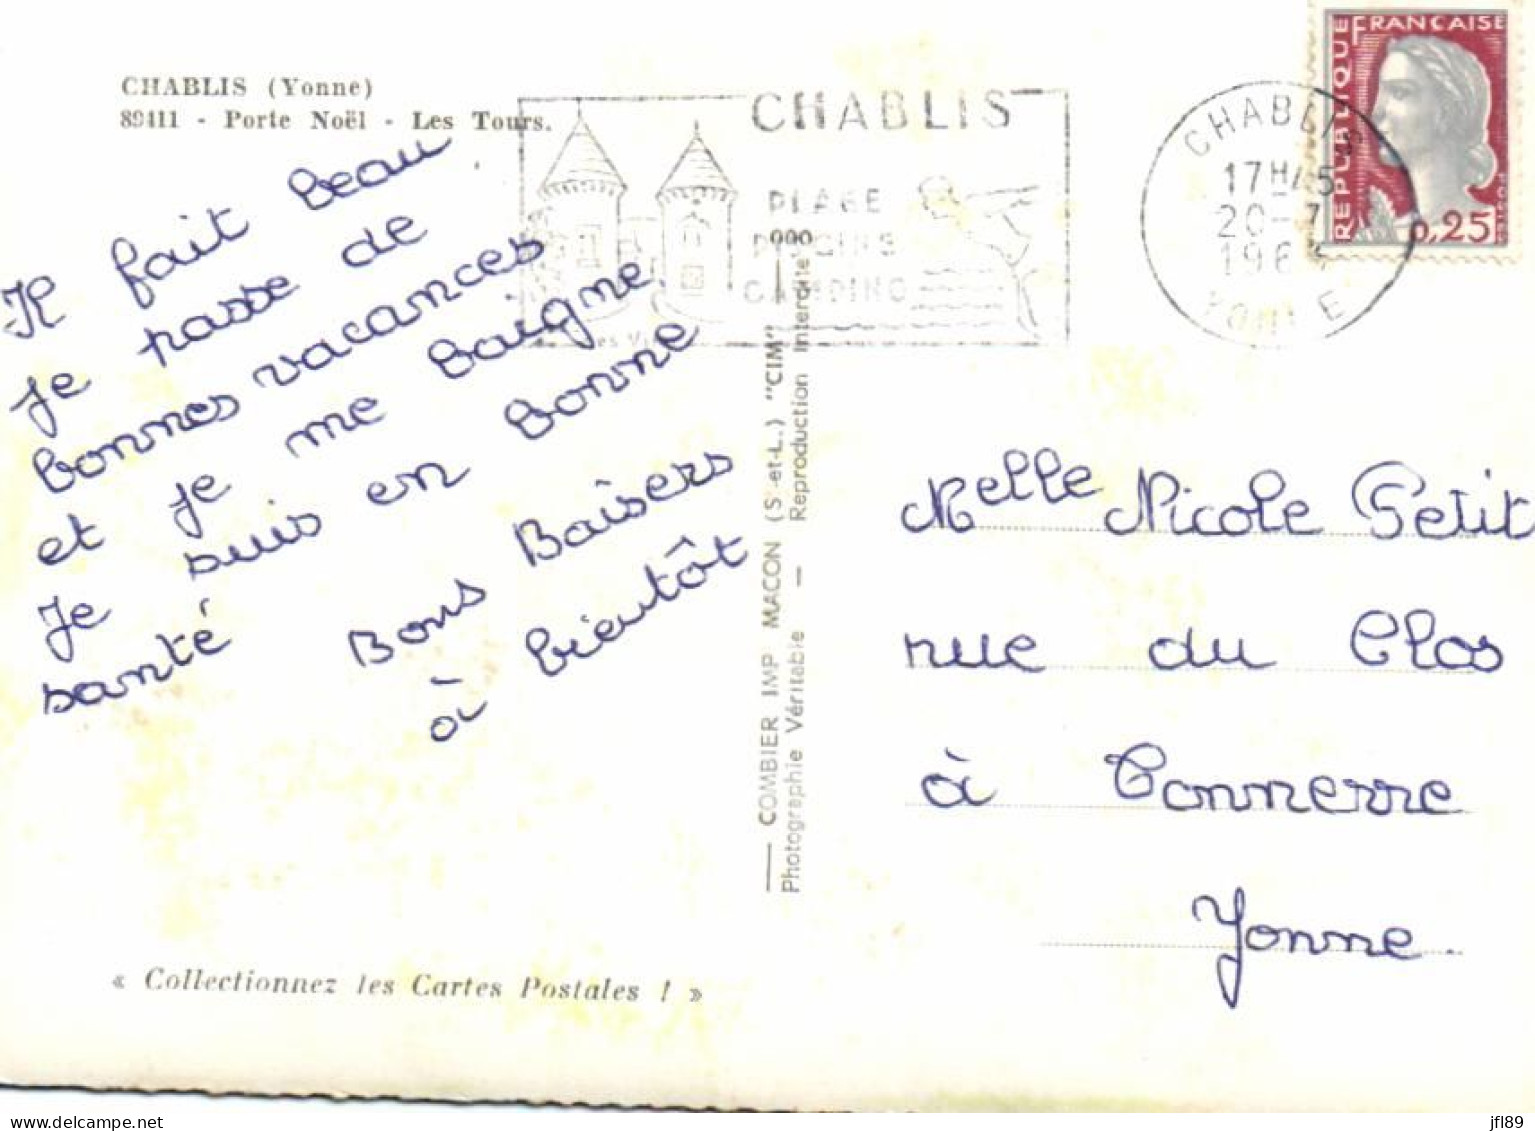 CHABLIS (Yonne)
89411 - Porte Noël - Les Tours.
Il fait beau
je passe de
bonnes vacances
et je me baigne
Je suis en bonne
santé
Bons Baisers
à bientôt
« Collectionnez les Cartes Postales ! »
COMBIER IMP MACON (S-et-L.) "CIM"
Photographie Véritable — Reproduction Interdite
CHABLIS
PLAGE
CAMPING
CHABLIS
17H45
20-7
YONNE
REPUBLIQUE FRANÇAISE
0,25
Melle Nicole Petit
rue du Clos
à Tonnerre
Yonne.
delcampe.net
jfl89